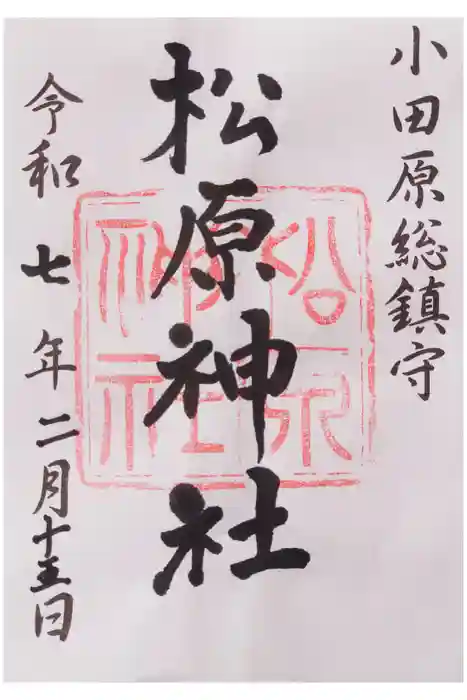 小田原総鎮守
松原神社
令和七年二月十五日
松原神社